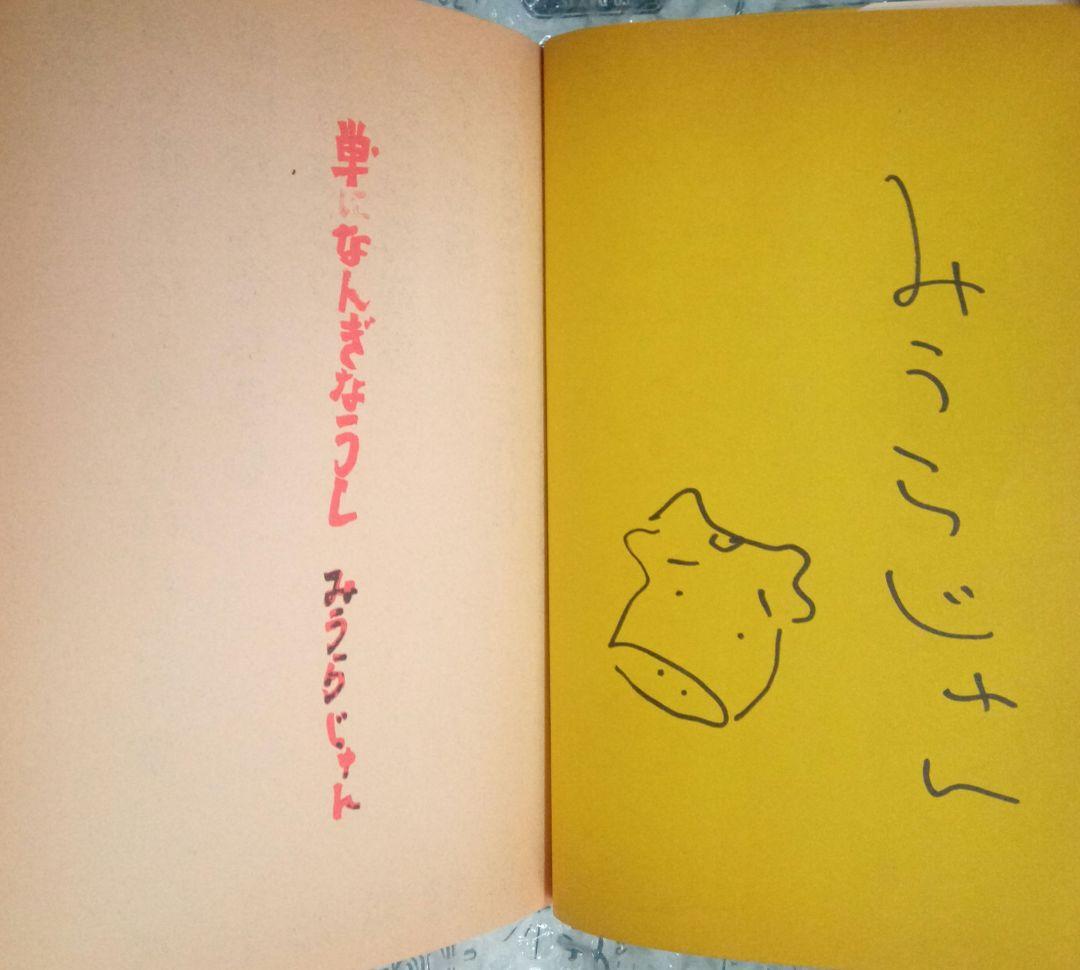 みうらじゅん
単になんぎなうし みうらじゅん